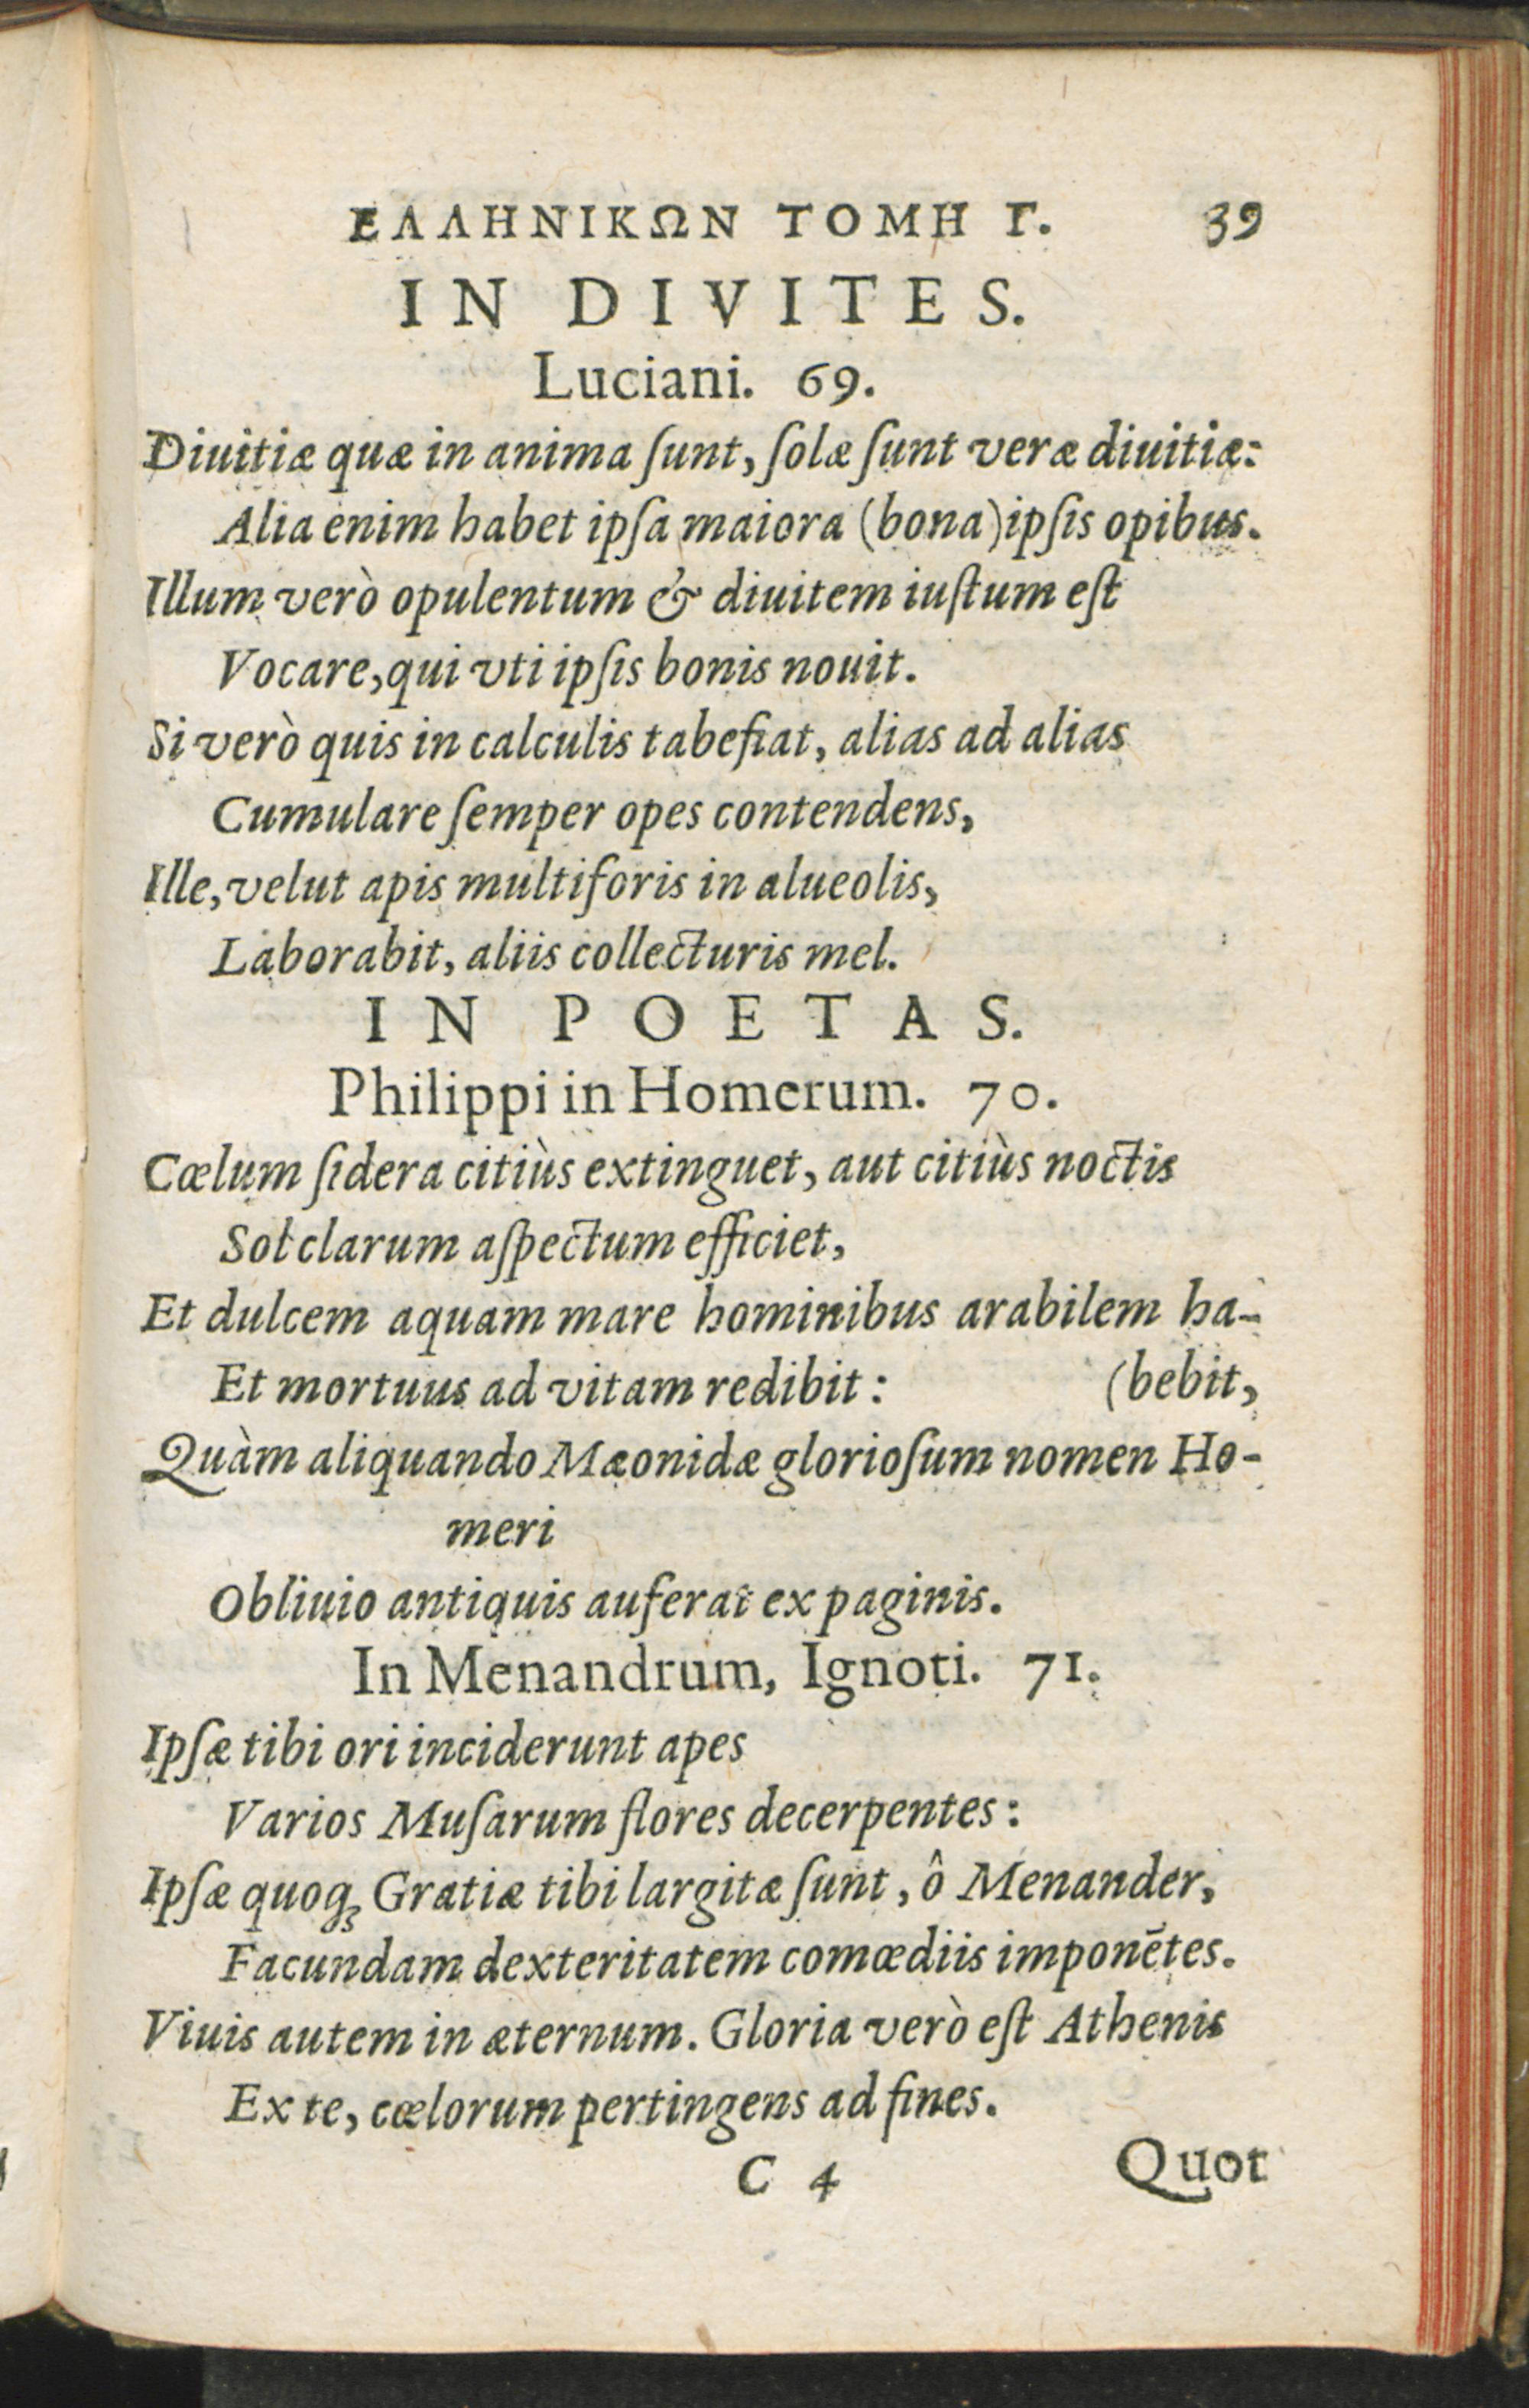 ΕΛΛΗΝΙΚΩΝ ΤΟΜΗ Γ. 39
IN DIVITES.
Luciani. 69.
Diuitiæ quæ in anima ſunt, ſolæ ſunt veræ diuitiæ:
Alia enim habet ipſa maiora (bona) ipſis opibus.
Illum verò opulentum & diuitem iuſtum eſt
Vocare, qui vti ipſis bonis nouit.
Si verò quis in calculis tabefiat, alias ad alias
Cumulare ſemper opes contendens,
Ille, velut apis multiforis in alueolis,
Laborabit, aliis collecturis mel.
IN POETAS.
Philippi in Homerum. 70.
Cœlum ſidera citiùs extinguet, aut citiùs noctis
Sol clarum aſpectum efficiet,
Et dulcem aquam mare hominibus arabilem ha-
Et mortuus ad vitam redibit: (bebit,
Quàm aliquando Mæonidæ glorioſum nomen Ho-
meri
Obliuio antiquis auferat ex paginis.
In Menandrum, Ignoti. 71.
Ipſæ tibi ori inciderunt apes
Varios Muſarum flores decerpentes:
Ipſæ quoqꝫ Gratiæ tibi largitæ ſunt, ô Menander,
Facundam dexteritatem comœdiis imponẽtes.
Viuis autem in æternum. Gloria verò eſt Athenis
Ex te, cœlorum pertingens ad fines.
C 4 Quot